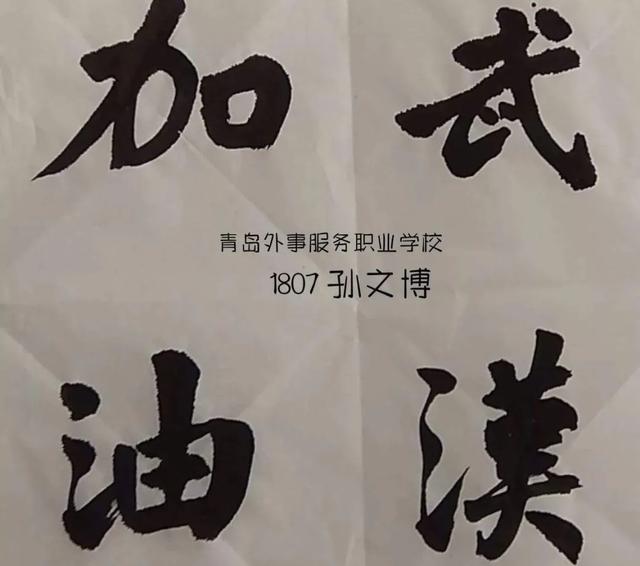 武漢
加油
青岛外事服务职业学校
1807 孙文博